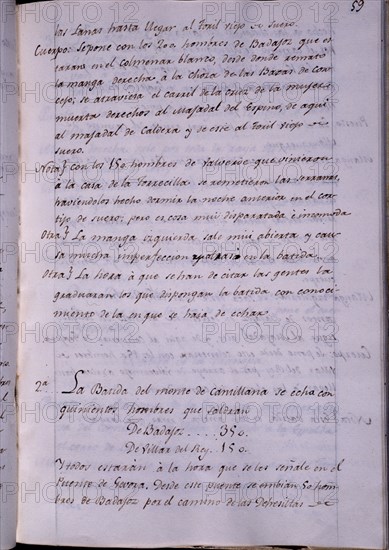 59
las Lanas hasta llegar, al Toril viejo de suero.
Cuerpo: Se pone con los 200 hombres de Badajoz que es
taran en el colmenar blanco, desde donde remató
la manga derecha à la choza de las Bazas de Con
cejo, se atraviesa el carril de la cruz de la muger
muerta derechos al Majadal del Espino, de aqui
al majadal de Caldera y de este al Toril viejo de
suero.
Nota} con los 150 hombres de Valverde que vinieron
à la casa de la Torrecilla se remetieron las serranas,
haviendolos hecho dormir la noche anterior en el cor
tijo de suero; pero es cosa mui disparatada è incomoda
Otra} La manga izquierda sale mui abierta y cau
sa mucha imperfeccion en la batida.
Otra} La hora à que se han de citar las gentes la
graduaran los que dispongan la batida con conoci
miento de la en que se haya de echar.
2ª La Batida del monte de Cantillana se echa con
quinientos hombres que saldran
De Badajoz .... 350.
De Villar del Rey . 150.
Y todos estarán à la hora que se les señale en el
Puente de Gevora. Desde este puente se embian 50 hom
bres de Badajoz por el camino de las Dehesillas